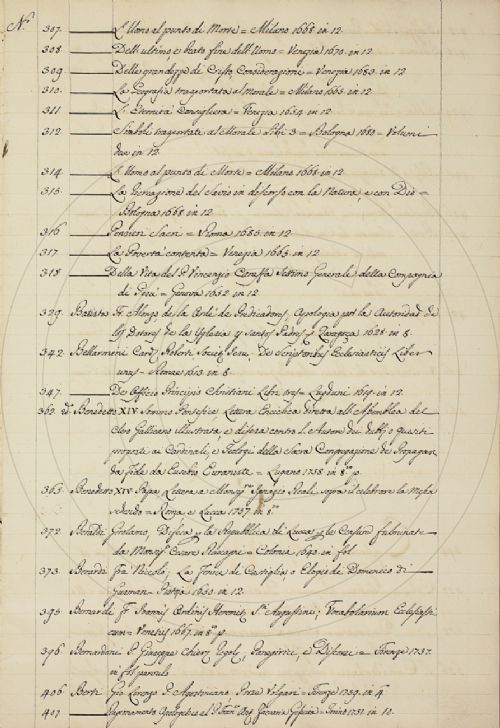 N.º 307. L'Uomo al punto di Morte = Milano 1668 in 12
308 Dell'ultimo e beato fine dell'Uomo = Venezia 1670. in 12
309 Delle grandezze di Cristo Considerazione = Venezia 1680. in 12
310 La Geografia trasportata al Morale = Milano 1665 in 12
311 L'Eternità Consigliera = Venezia 1654 in 12
312 Simboli trasportate al Morale Libri 3 = Bologna 1680 = Volumi
due in 12
314 L'Uomo al punto di Morte = Milano 1668 in 12
315 La Ricreazione del Savio in discorso con la Natura, e con Dio =
Bologna 1668 in 12
316 Pensieri Sacri = Roma 1685 in 12
317 La Povertà contenta = Venezia 1665 in 12
318 Della Vita del P. Vincenzio Caraffa Settimo Generale della Compagnia
di Gesù = Genova 1652 in 12
329 Batista Fr. Alonso de la Orde de Predicadores, Apologia por la Autoridad de
los Dotores de la Yglesia y Santos Padres = Zaragoza 1628 in 8
342 Bellarmini Card. Roberti Societ. Jesu, De Scriptoribus Ecclesiasticis Liber
unus = Romae 1613 in 8
347 De Officio Principis Christiani Libri tres = Lugduni 1619 in 12
362 Benedetto XIV Sommo Pontefice, Lettera Enciclica diretta all'Assemblea del
Clero Gallicano illustrata, e difesa contra l'Autore dei dubbj o quesiti
proposti ai Cardinali, e Teologi della Sacra Congregazione de Propagan
da fide da Eusebio Eraniste = Lugano 1758 in 8.º
363 Benedetto XIV Papa, Lettera a Monsig.r Ignazio Reali sopra il celebrare la Messa
sedendo = Roma, e Lucca 1757 in 8.º
372 Beraldi Girolamo, Difesa la Repubblica di Lucca le Censure fulminate
da Monsig. Cesare Vescovo = Colonia 1640 in fol
373 Berardi Fra Niccolò, La Fenice de Castiglia o Elogio de Domenico di
Gusman = Pistoja 1650 in 12
395 Bernardi F. Joannis Ordinis Heremit. S.ti Augustini; Vocabolarium Ecclesiasti
cum = Venetiis 1667 in 8.º
396 Bernardini P. Giuseppe Chier. Regol., Panegirici, e Discorsi = Firenze 1737.
in fol parvulo
406 Berti Gio. Lorenzo P. Agostiniano, Prose Volgari = Firenze 1759. in 4
407 Ragionamento Apologetico al P. = Torino 1751 in 10.